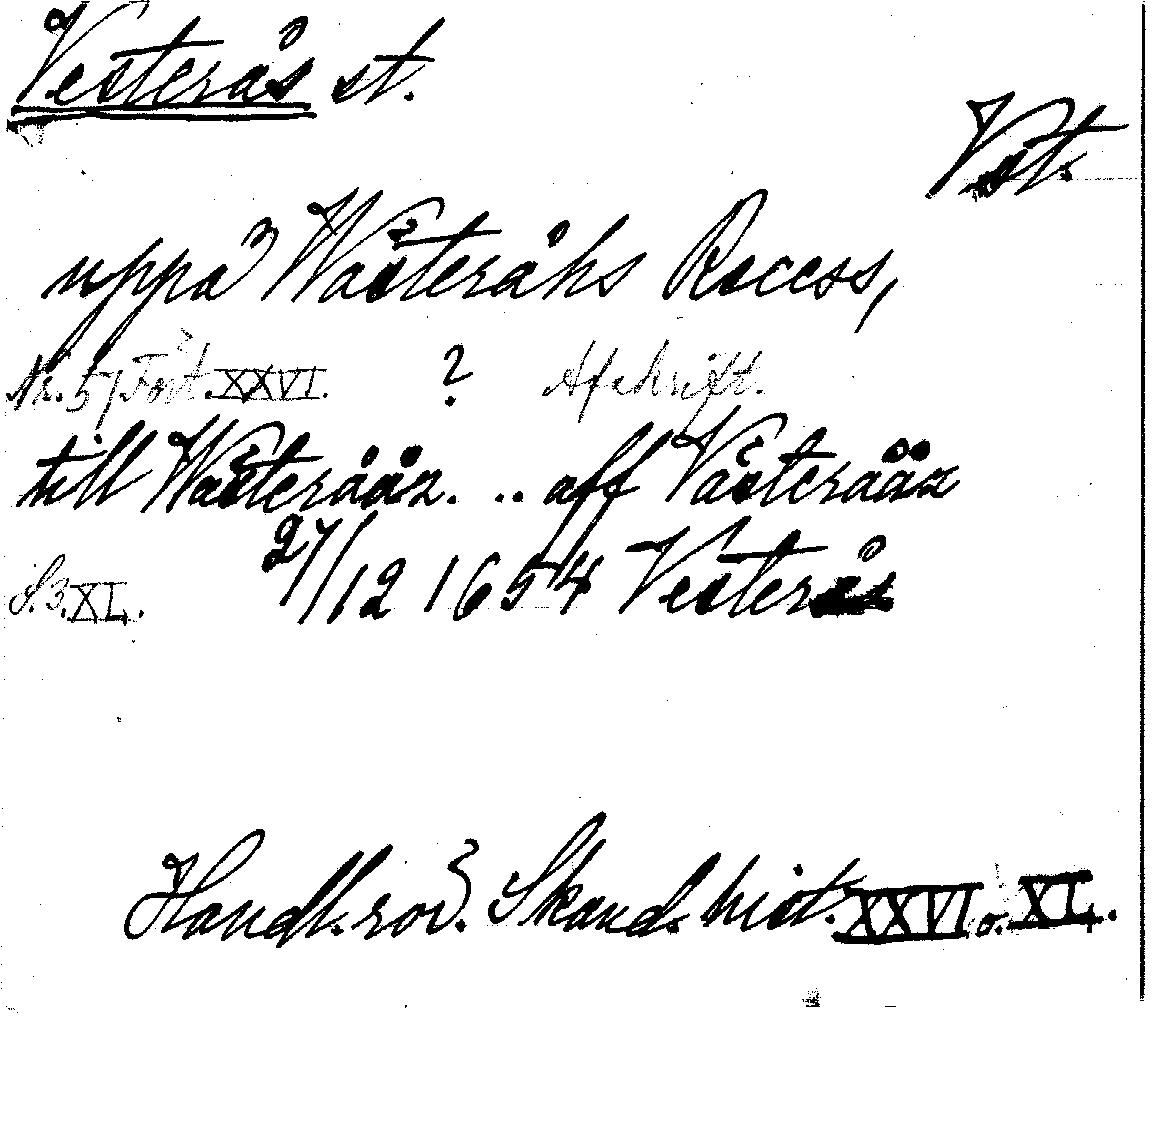 Vesterås st.
Vst.
uppå Wästeråhs Recess,
Nr. 51 Fört. XXVI. ? Afskrift.
till Wästerååz. .. aff Västerååz
S. 3. XL. 27/12 1654 Vesterås
Handl. rör. Skand. hist. XXVI o. XL.